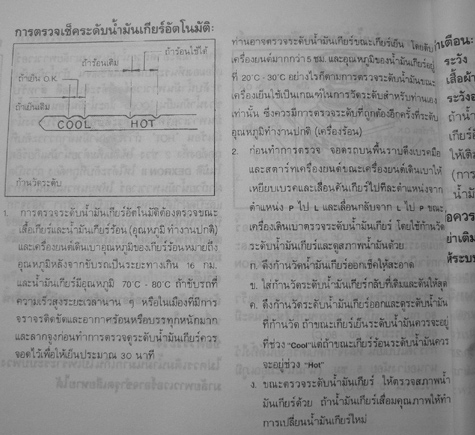 การตรวจเช็คระดับน้ำมันเกียร์อัตโนมัติ:
ถ้าร้อนใช้ได้
ถ้าร้อนเติม
ถ้าเย็น O.K.
ถ้าเย็นเติม
COOL HOT
ก้านวัดระดับ
1. การตรวจระดับน้ำมันเกียร์อัตโนมัติต้องตรวจขณะ
เสื้อเกียร์และน้ำมันเกียร์ร้อน (อุณหภูมิทำงานปกติ)
และเครื่องยนต์เดินเบาอุณหภูมิของเกียร์ร้อนหมายถึง
อุณหภูมิหลังจากขับรถเป็นระยะทางเกิน 16 กม.
และน้ำมันเกียร์มีอุณหภูมิ 70°C - 80°C ถ้าขับรถที่
ความเร็วสูงระยะเวลานาน ๆ หรือในเมืองที่มีการ
จราจรติดขัดและอากาศร้อนหรือบรรทุกหนักมาก
และลากจูงก่อนทำการตรวจดูระดับน้ำมันเกียร์ควร
จอดไว้เพื่อให้เย็นประมาณ 30 นาที
ท่านอาจตรวจระดับน้ำมันเกียร์ขณะเกียร์เย็น โดยดับ
เครื่องยนต์มากกว่า 5 ชม. และอุณหภูมิของน้ำมันเกียร์อยู่
ที่ 20°C - 30°C อย่างไรก็ตามการตรวจระดับน้ำมันขณะ
เครื่องเย็นใช้เป็นเกณฑ์ในการวัดระดับสำหรับท่านเอง
เท่านั้น ซึ่งควรมีการตรวจระดับที่ถูกต้องอีกครั้งที่ระดับ
อุณหภูมิทำงานปกติ (เครื่องร้อน)
2. ก่อนทำการตรวจ จอดรถบนพื้นราบดึงเบรคมือ
และสตาร์ทเครื่องยนต์ขณะเครื่องยนต์เดินเบาให้
เหยียบเบรคและเลื่อนคันเกียร์ไปที่ตำแหน่งจาก
ตำแหน่ง P ไป L และเลื่อนกลับจาก L ไป P ขณะ
เครื่องเดินเบาตรวจระดับน้ำมันเกียร์ โดยใช้ก้านวัด
ระดับน้ำมันเกียร์และดูสภาพน้ำมันด้วย
ก. ดึงก้านวัดน้ำมันเกียร์ออกเช็คให้สะอาด
ข. ใส่ก้านวัดระดับน้ำมันเกียร์กลับที่เดิมและดันให้สุด
ค. ดึงก้านวัดระดับน้ำมันเกียร์ออกและดูระดับน้ำมัน
ที่ก้านวัด ถ้าขณะเกียร์เย็นระดับน้ำมันควรจะอยู่
ที่ช่วง "Cool" แต่ถ้าขณะเกียร์ร้อนระดับน้ำมันควร
จะอยู่ช่วง "Hot"
ง. ขณะตรวจระดับน้ำมันเกียร์ ให้ตรวจสภาพน้ำ
มันเกียร์ด้วย ถ้าน้ำมันเกียร์เสื่อมคุณภาพให้ทำ
การเปลี่ยนน้ำมันเกียร์ใหม่
เตือน:
ระวัง
เสื้อผ้า
ระวังอ
ถ้าน้ำ
เกียร์
ให้เติม
(การ
น้ำมั
ควร